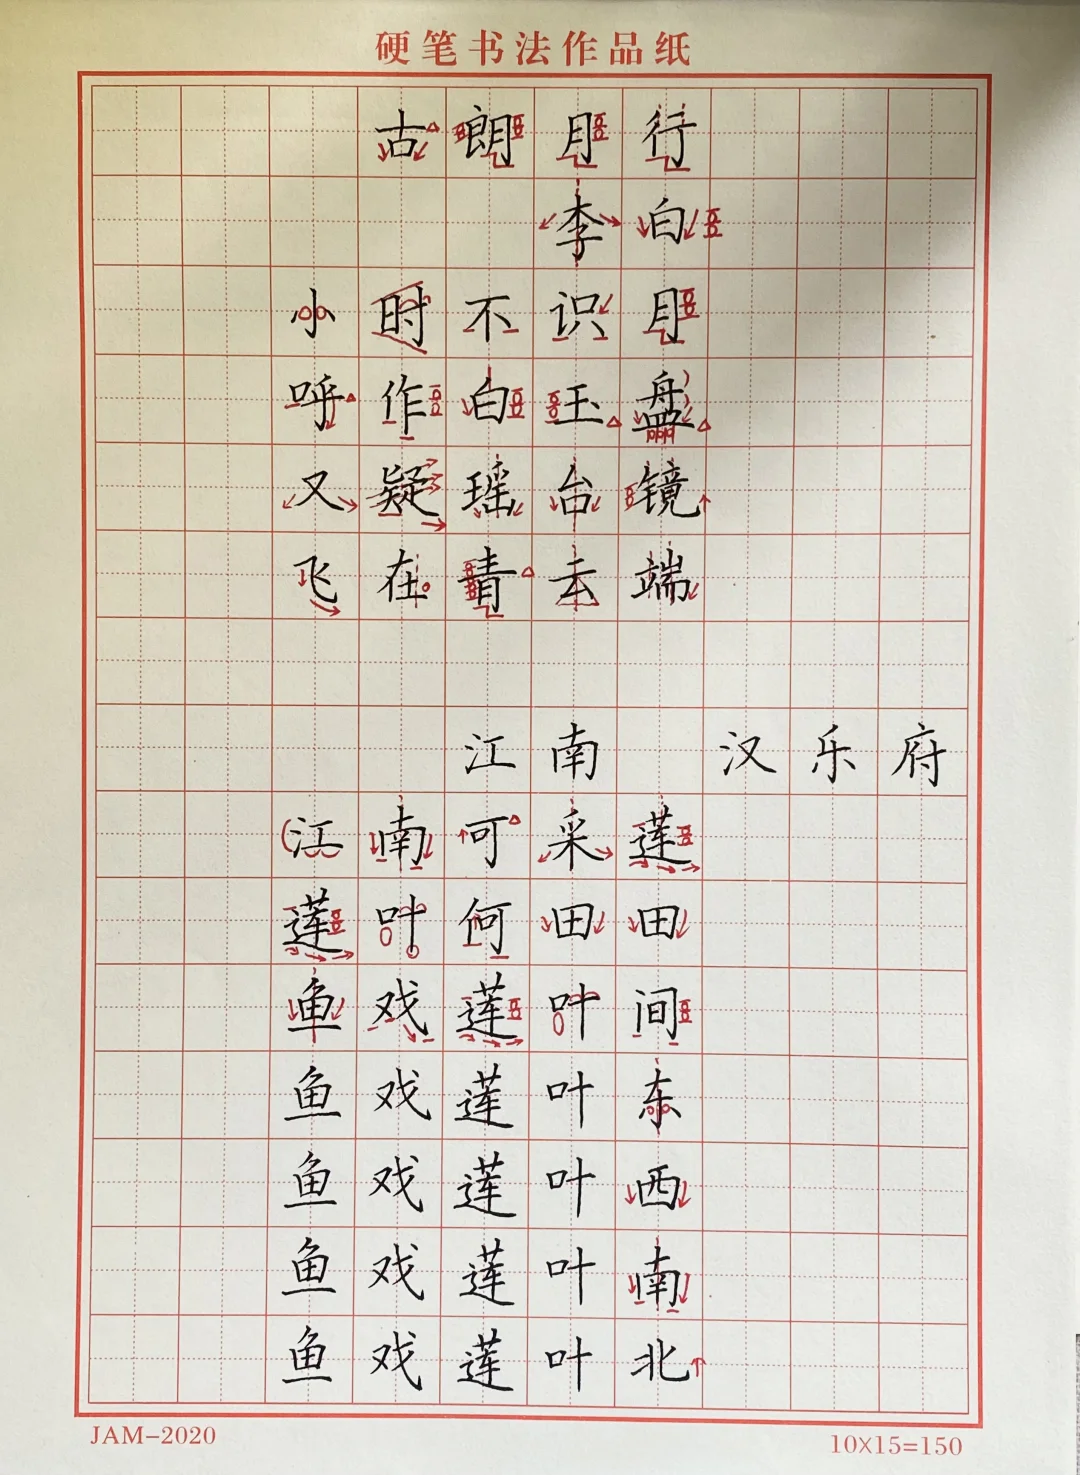 硬笔书法作品纸
古朗月行
李白
小时不识月
呼作白玉盘
又疑瑶台镜
飞在青云端
江南 汉乐府
江南可采莲
莲叶何田田
鱼戏莲叶间
鱼戏莲叶东
鱼戏莲叶西
鱼戏莲叶南
鱼戏莲叶北
JAM-2020
10X15=150